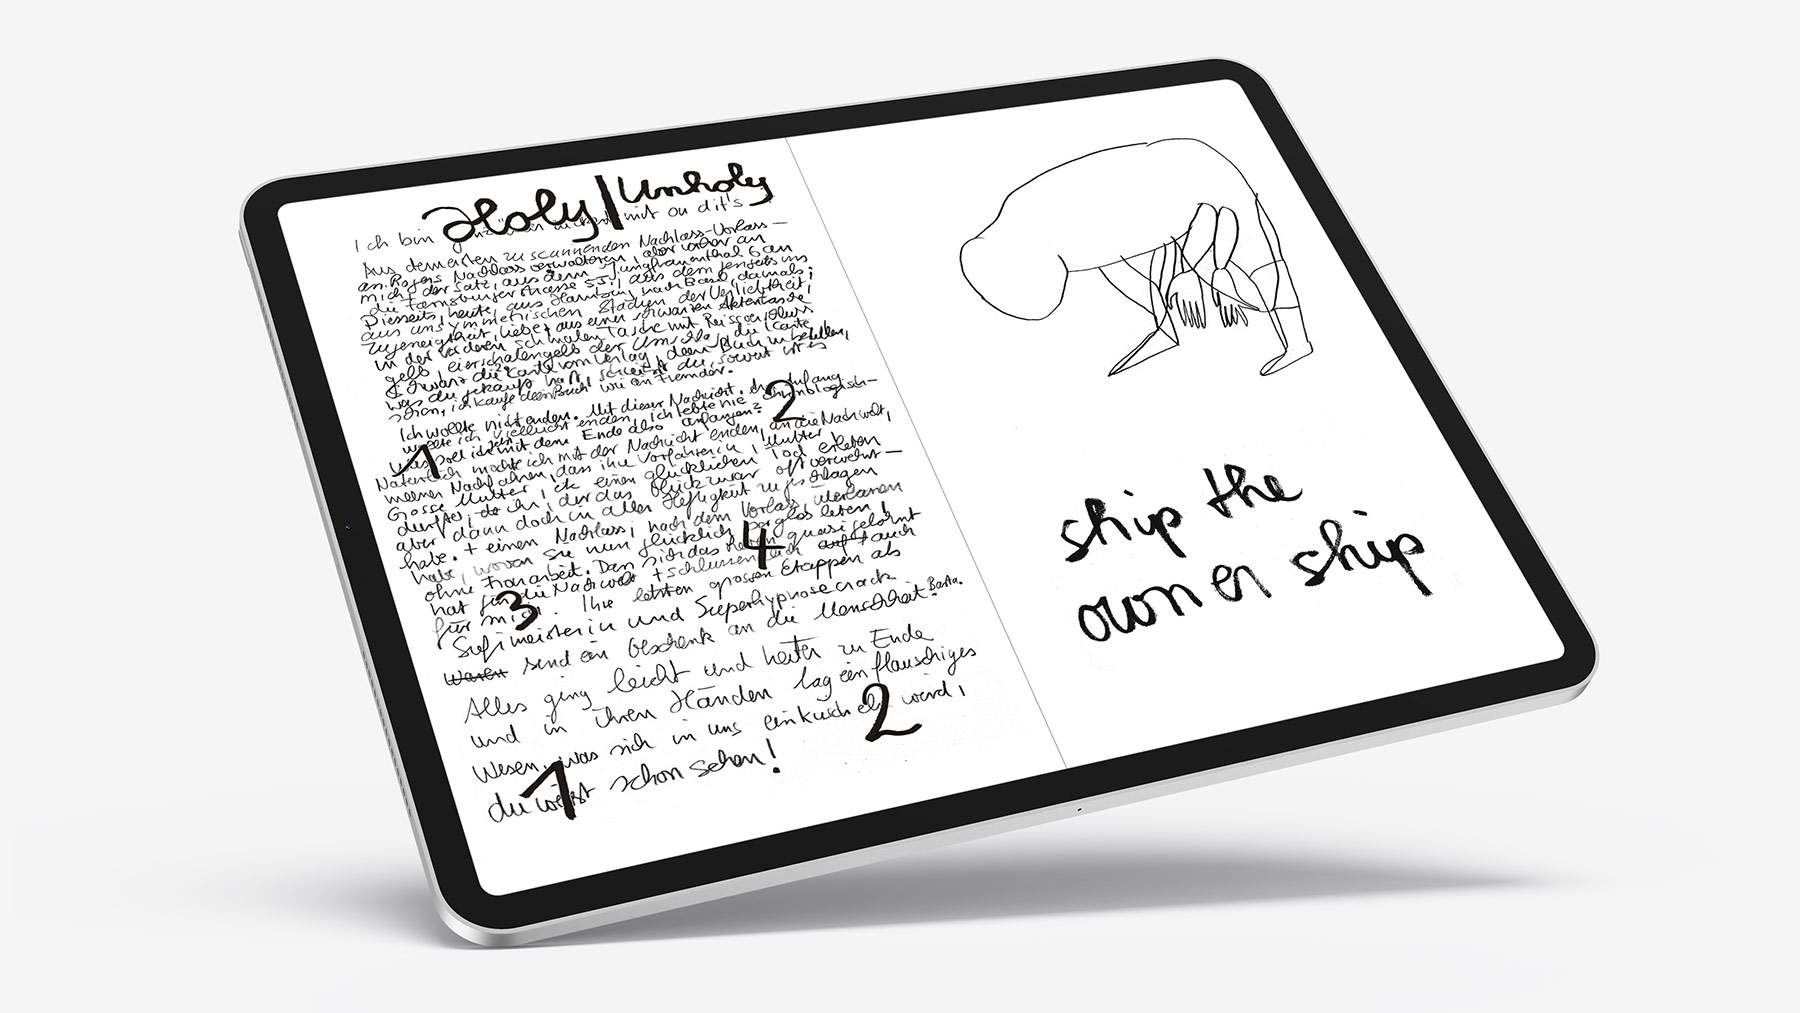 Holy/Unholy
Ich bin mit on dit's
Aus dem ersten zu scannenden Nachlass-Vorlass-
an Rogers Nachlass verwalteren, aber vorher an
mich der Satz, aus dem Jungfrauenthal 6 an
die Farnsburger Strasse 55, aus dem Jenseits ins
Diesseits, heute, aus Hamburg, nach Basel, damals,
aus unsymmetrischen Stadien der Verliebtheit,
Zugeneigtheit, Liebe, aus einer schwarzen Aktentasche
in der vorderen schmalen Tasche mit Reissverschluss
gelb, eierschalengelb der Umschlag, die Karte
schwarz die Karte vom Verlag, dein Buch zu bestellen,
was du gekauft hast, schreibst du, soweit ist es
schon, ich kaufe dein Buch wie ein Fremder.
Ich wollte nicht enden. Mit dieser Nachricht. Am Anfang
wollte ich vielleicht enden, ich lebte nie chronologisch-
Was soll ich mit dem Ende also anfangen? 2
1 Natürlich möchte ich mit der Nachricht enden, an die Nachwelt,
meinen Nachfahren, dass ihre Vorfahrerin, Mutter
Grosse Mutter, ich einen glücklichen Tod erleben
durfte, ich, der das Glück zwar oft verwehrt-
aber dann doch in aller Heftigkeit zugeschlagen
habe. + einen Nachlass, nach dem Vorlass, überlassen
habe, wovon sie nun glücklich sorglos leben,
ohne Fronarbeit. Dass sich das quasi gelohnt
hat für die Nachwelt + schlussendlich auch 4
für mich. Ihre letzten grossen Etappen als 3
Sufimeisterin und Superhypnosecrack
waren sind ein Geschenk an die Menschheit. Basta.
Alles ging leicht und heiter zu Ende
und in ihren Händen lag ein flauschiges
Wesen, was sich in uns einkuscheln wird, 2
du wirst schon sehen! 1
ship the
owner ship